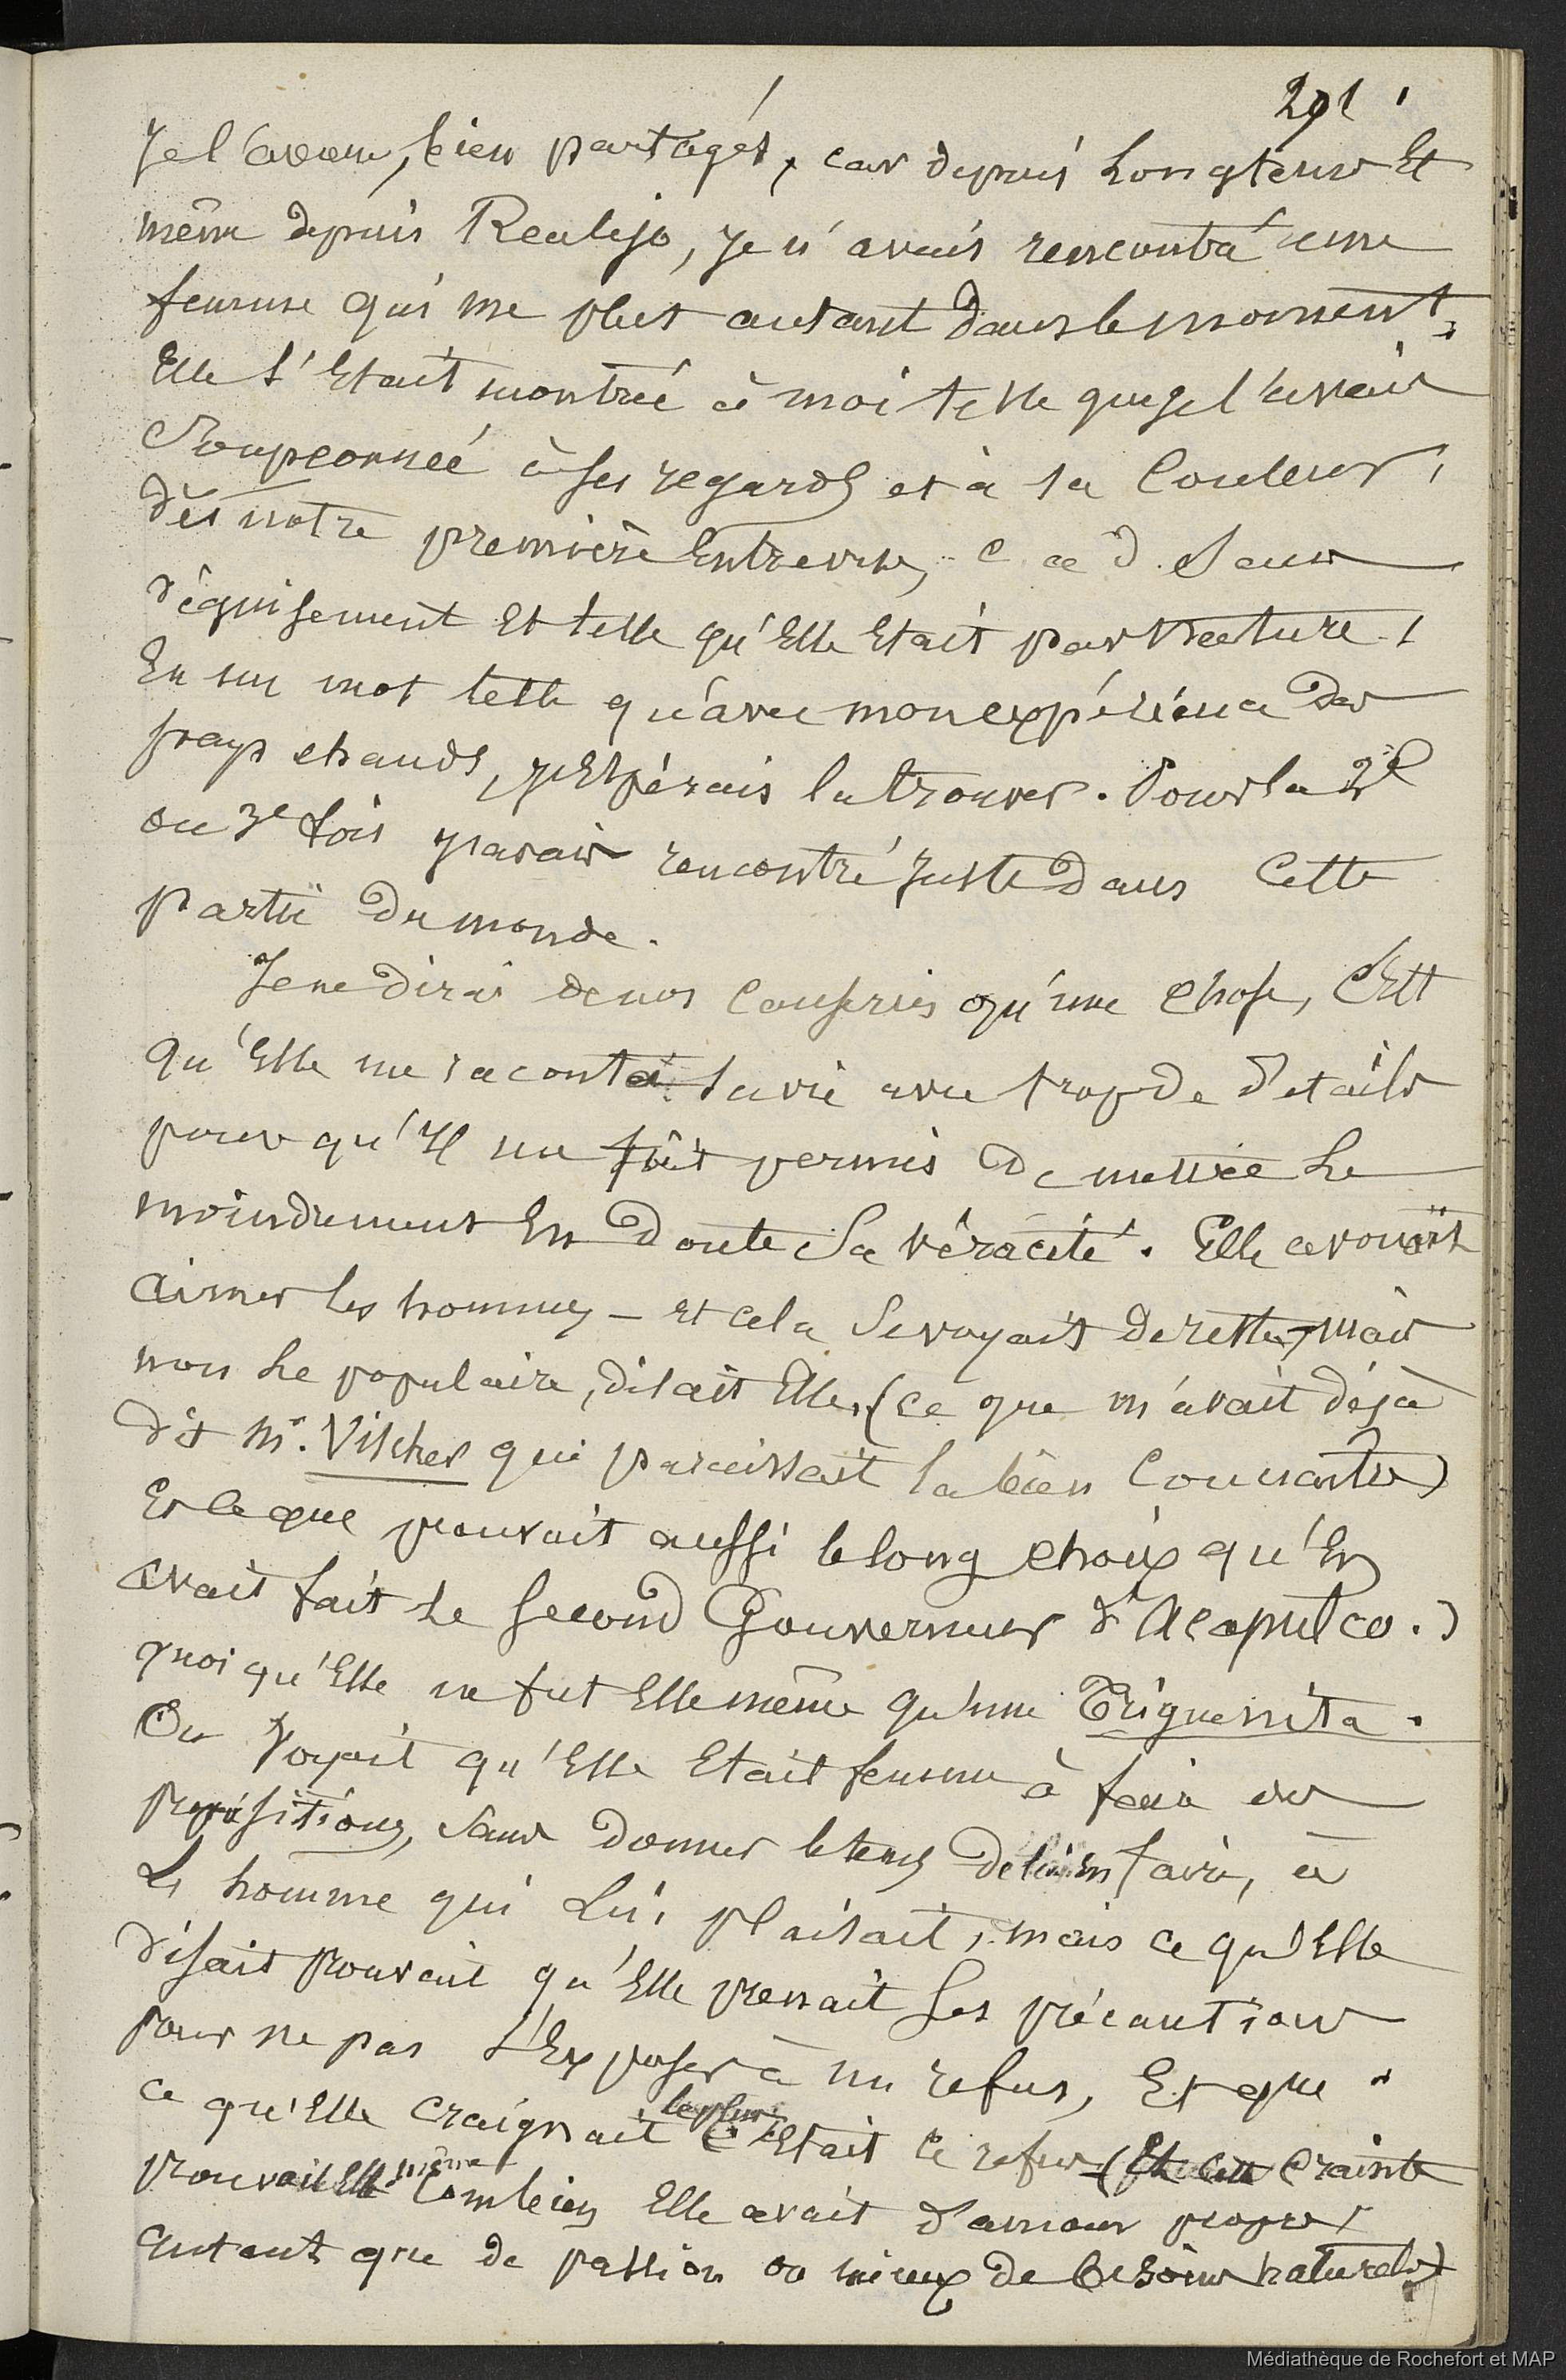 291
Je l'avoue, bien partagés, car depuis Longtems Et
même depuis Realejo, Je n'avais rencontré une
femme qui me plut autant dans le moment,
Elle s'Etait montrée à moi telle que je l'avais
Soupçonnée à ses regards et à sa Couleur,
dès notre première Entrevue, c. a d. Sans
déguisement Et telle qu'Elle Etait par Nature,
En un mot telle qu'avec mon expérience des
pays chauds, J'Espérais la trouver. Pour la 2e
ou 3e fois J'avais rencontré Juste dans Cette
partie du monde.
Je ne dirai de nos Causeries qu'une Chose, C'Est
qu'Elle me raconta sa vie avec trop de détails
pour qu'Il me fût permis de mettre Le
moindrement En Doute Sa véracité. Elle avouait
Aimer les hommes – Et cela Se voyait de reste, mais
non Le populaire, disait Elle, (ce que m'avait déjà
dit Mr. Vischer qui paraissait la bien Connaître)
Et ce que prouvait aussi le long choix qu'En
avait fait Le Second Gouverneur d'Acapulco.)
quoi qu'Elle ne fut Elle même qu'une Triguenita.
On Voyait qu'Elle Etait femme à faire des
propositions, sans donner le tems de lui en faire, à
L'homme qui Lui plaisait, mais ce qu'Elle
disait prouvait qu'Elle prenait Ses précautions
pour ne pas s'Exposer à un refus, Et que
ce qu'Elle craignait le plus c'Etait le refus (Et cette Crainte
prouvait Elle même Combien Elle avait d'amour propre,
autant que de passion ou mieux de besoins naturels)
Médiathèque de Rochefort et MAP